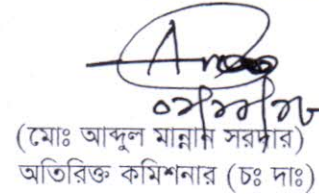 (মোঃ আব্দুল মান্নান সরদার)
অতিরিক্ত কমিশনার (চঃ দাঃ)